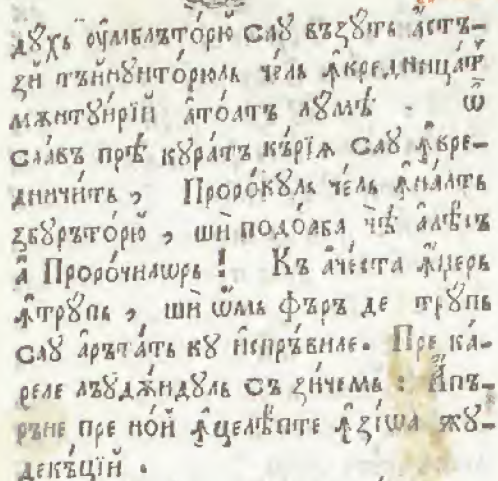 дꙋхь ᲂу҆мблъто́рю саꙋ възꙋ́ть а҆́стъ-
зй тъйнꙋито́рюль че́ль ꙟ҆кредница́т
мѫнтꙋи́рїй а҆тоатъ лꙋмѣ . ѡ҆
сла́въ прѣ кꙋра́тъ къ́рїѧ саꙋ ꙟ҆вре-
дничи́тъ , Проро́кꙋль че́ль ꙟ҆на́лтъ
збꙋръто́рю , шѝ подо́аба чѣ̀ а҆лѣ́съ
а҆̀ Проро́чилѡрь ! Къ а҆че́ста ꙟ҆́церь
ꙟ҆трꙋ́пь , шѝ ѡ҆́мь фъръ де трꙋ́пь
саꙋ а҆ръта́ть кꙋ и҆спръ́виле. Пре ка́-
реле лъꙋдѫ́ндꙋль съ зи́чемь : А҆пъ-
ръне пре но́й ꙟ҆целѣ́пте ꙟ҆зі́ѡа жꙋ-
декъ́цїй .